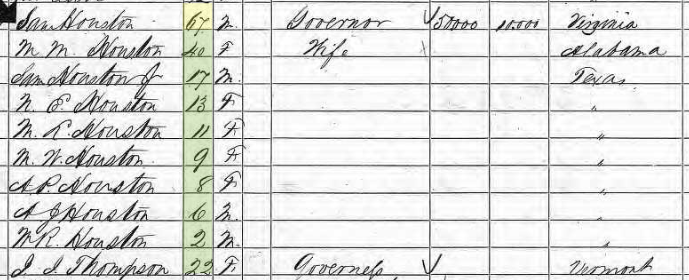 Sam Houston 67 M. Governor 50000 10.000 Virginia
M. M. Houston 40 F Wife Alabama
Sam Houston Jr 17 M. Texas
N E Houston 13 F "
M. L Houston 11 F "
M. W. Houston 9 F "
A P. Houston 8 F "
A J Houston 6 M. "
W R. Houston 2 M. "
J. J. Thompson 22 F Governeʃs Vermont